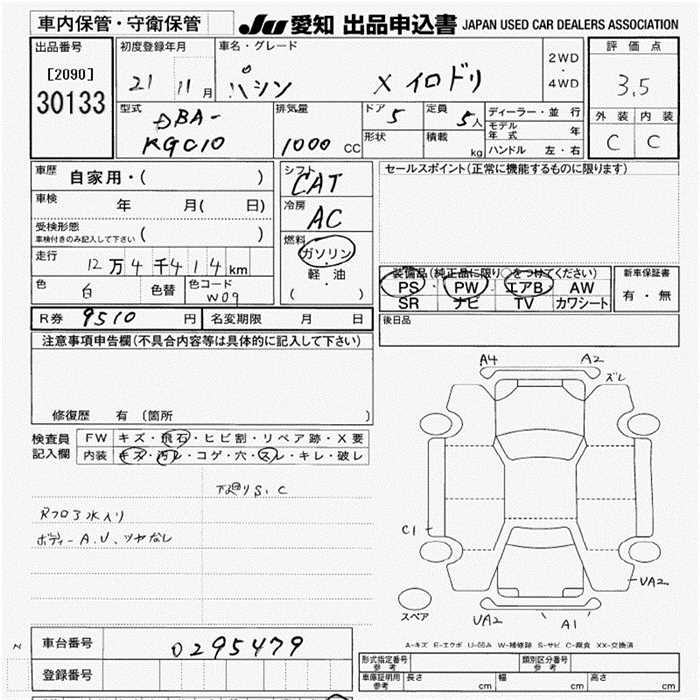 車内保管・守衛保管
JU 愛知 出品申込書 JAPAN USED CAR DEALERS ASSOCIATION
出品番号
[2090]
30133
初度登録年月
21 11 月
車名・グレード
パシン X イロドリ
2WD
・
4WD
評価点
3.5
外装 内装
C C
型式
DBA-
KGC10
排気量
1000 CC
ドア 5
定員 5人
形状
積載 kg
ディーラー・並行
モデル年式 年
ハンドル 左・右
車歴
自家用・( )
車検 年 月( 日)
受検形態
車検付きのみ記入して下さい ( )
走行
12万4千414km
色 白 色替 色コード W09
シフト
CAT
冷房
AC
燃料
ガソリン
・
軽油
( )
セールスポイント(正常に機能するものに限ります)
装備品(純正品に限り○をつけてください)
PS PW エアB AW
SR ナビ TV カワシート
新車保証書
有・無
後日品
R券 9510 円 名変期限 月 日
注意事項申告欄(不具合内容等は具体的に記入して下さい)
修復歴 有 (箇所 )
検査員
記入欄
FW キズ・飛石・ヒビ割・リペア跡・X要
内装 キズ・汚レ・コゲ・穴・スレ・キレ・破レ
下廻りS、C
Rフロア水入り
ボディーA.U、ツヤなし
A4 A2
ズレ
C1
UA2
UA2 A1
スペア
A-キズ E-エクボ U-凹み W-補修跡 S-サビ C-腐食 XX-交換済
車台番号 0295479
登録番号
形式指定番号
参考
類別区分番号
参考
車庫証明用
参考
長さ cm 幅 cm 高さ cm